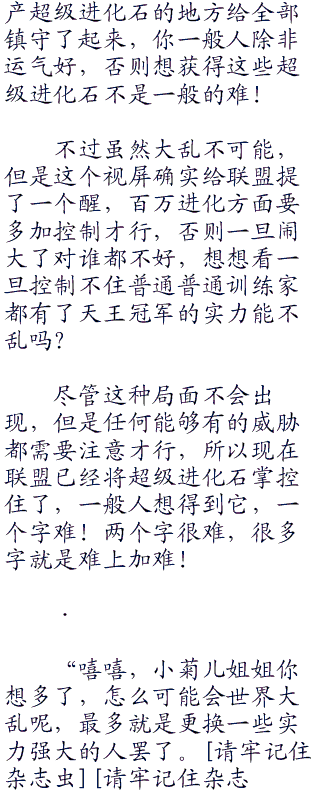 产超级进化石的地方给全部
镇守了起来，你一般人除非
运气好，否则想获得这些超
级进化石不是一般的难！
不过虽然大乱不可能，
但是这个视屏确实给联盟提
了一个醒，百万进化方面要
多加控制才行，否则一旦闹
大了对谁都不好，想想看一
旦控制不住普通普通训练家
都有了天王冠军的实力能不
乱吗？
尽管这种局面不会出
现，但是任何能够有的威胁
都需要注意才行，所以现在
联盟已经将超级进化石掌控
住了，一般人想得到它，一
个字难！两个字很难，很多
字就是难上加难！
.
“嘻嘻，小菊儿姐姐你
想多了，怎么可能会世界大
乱呢，最多就是更换一些实
力强大的人罢了。[请牢记住
杂志虫][请牢记住杂志